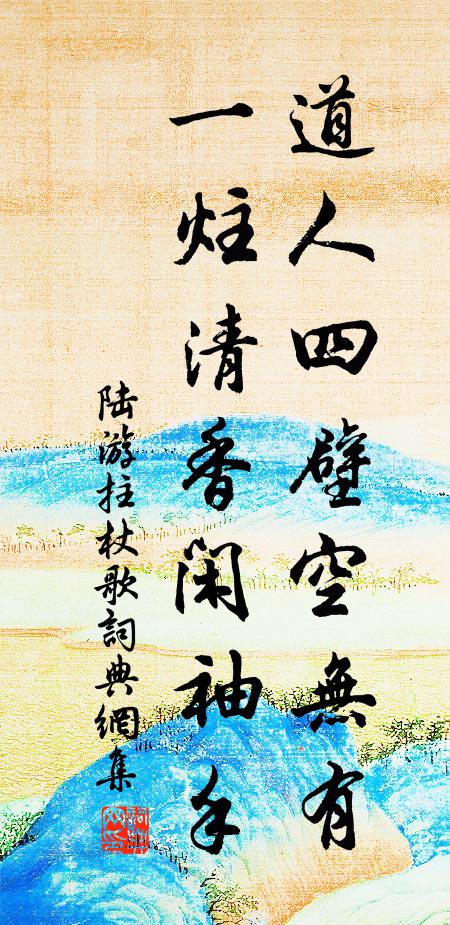 道人四壁空無有
一炷清香閑袖手
陆游拄杖歌詞典網集